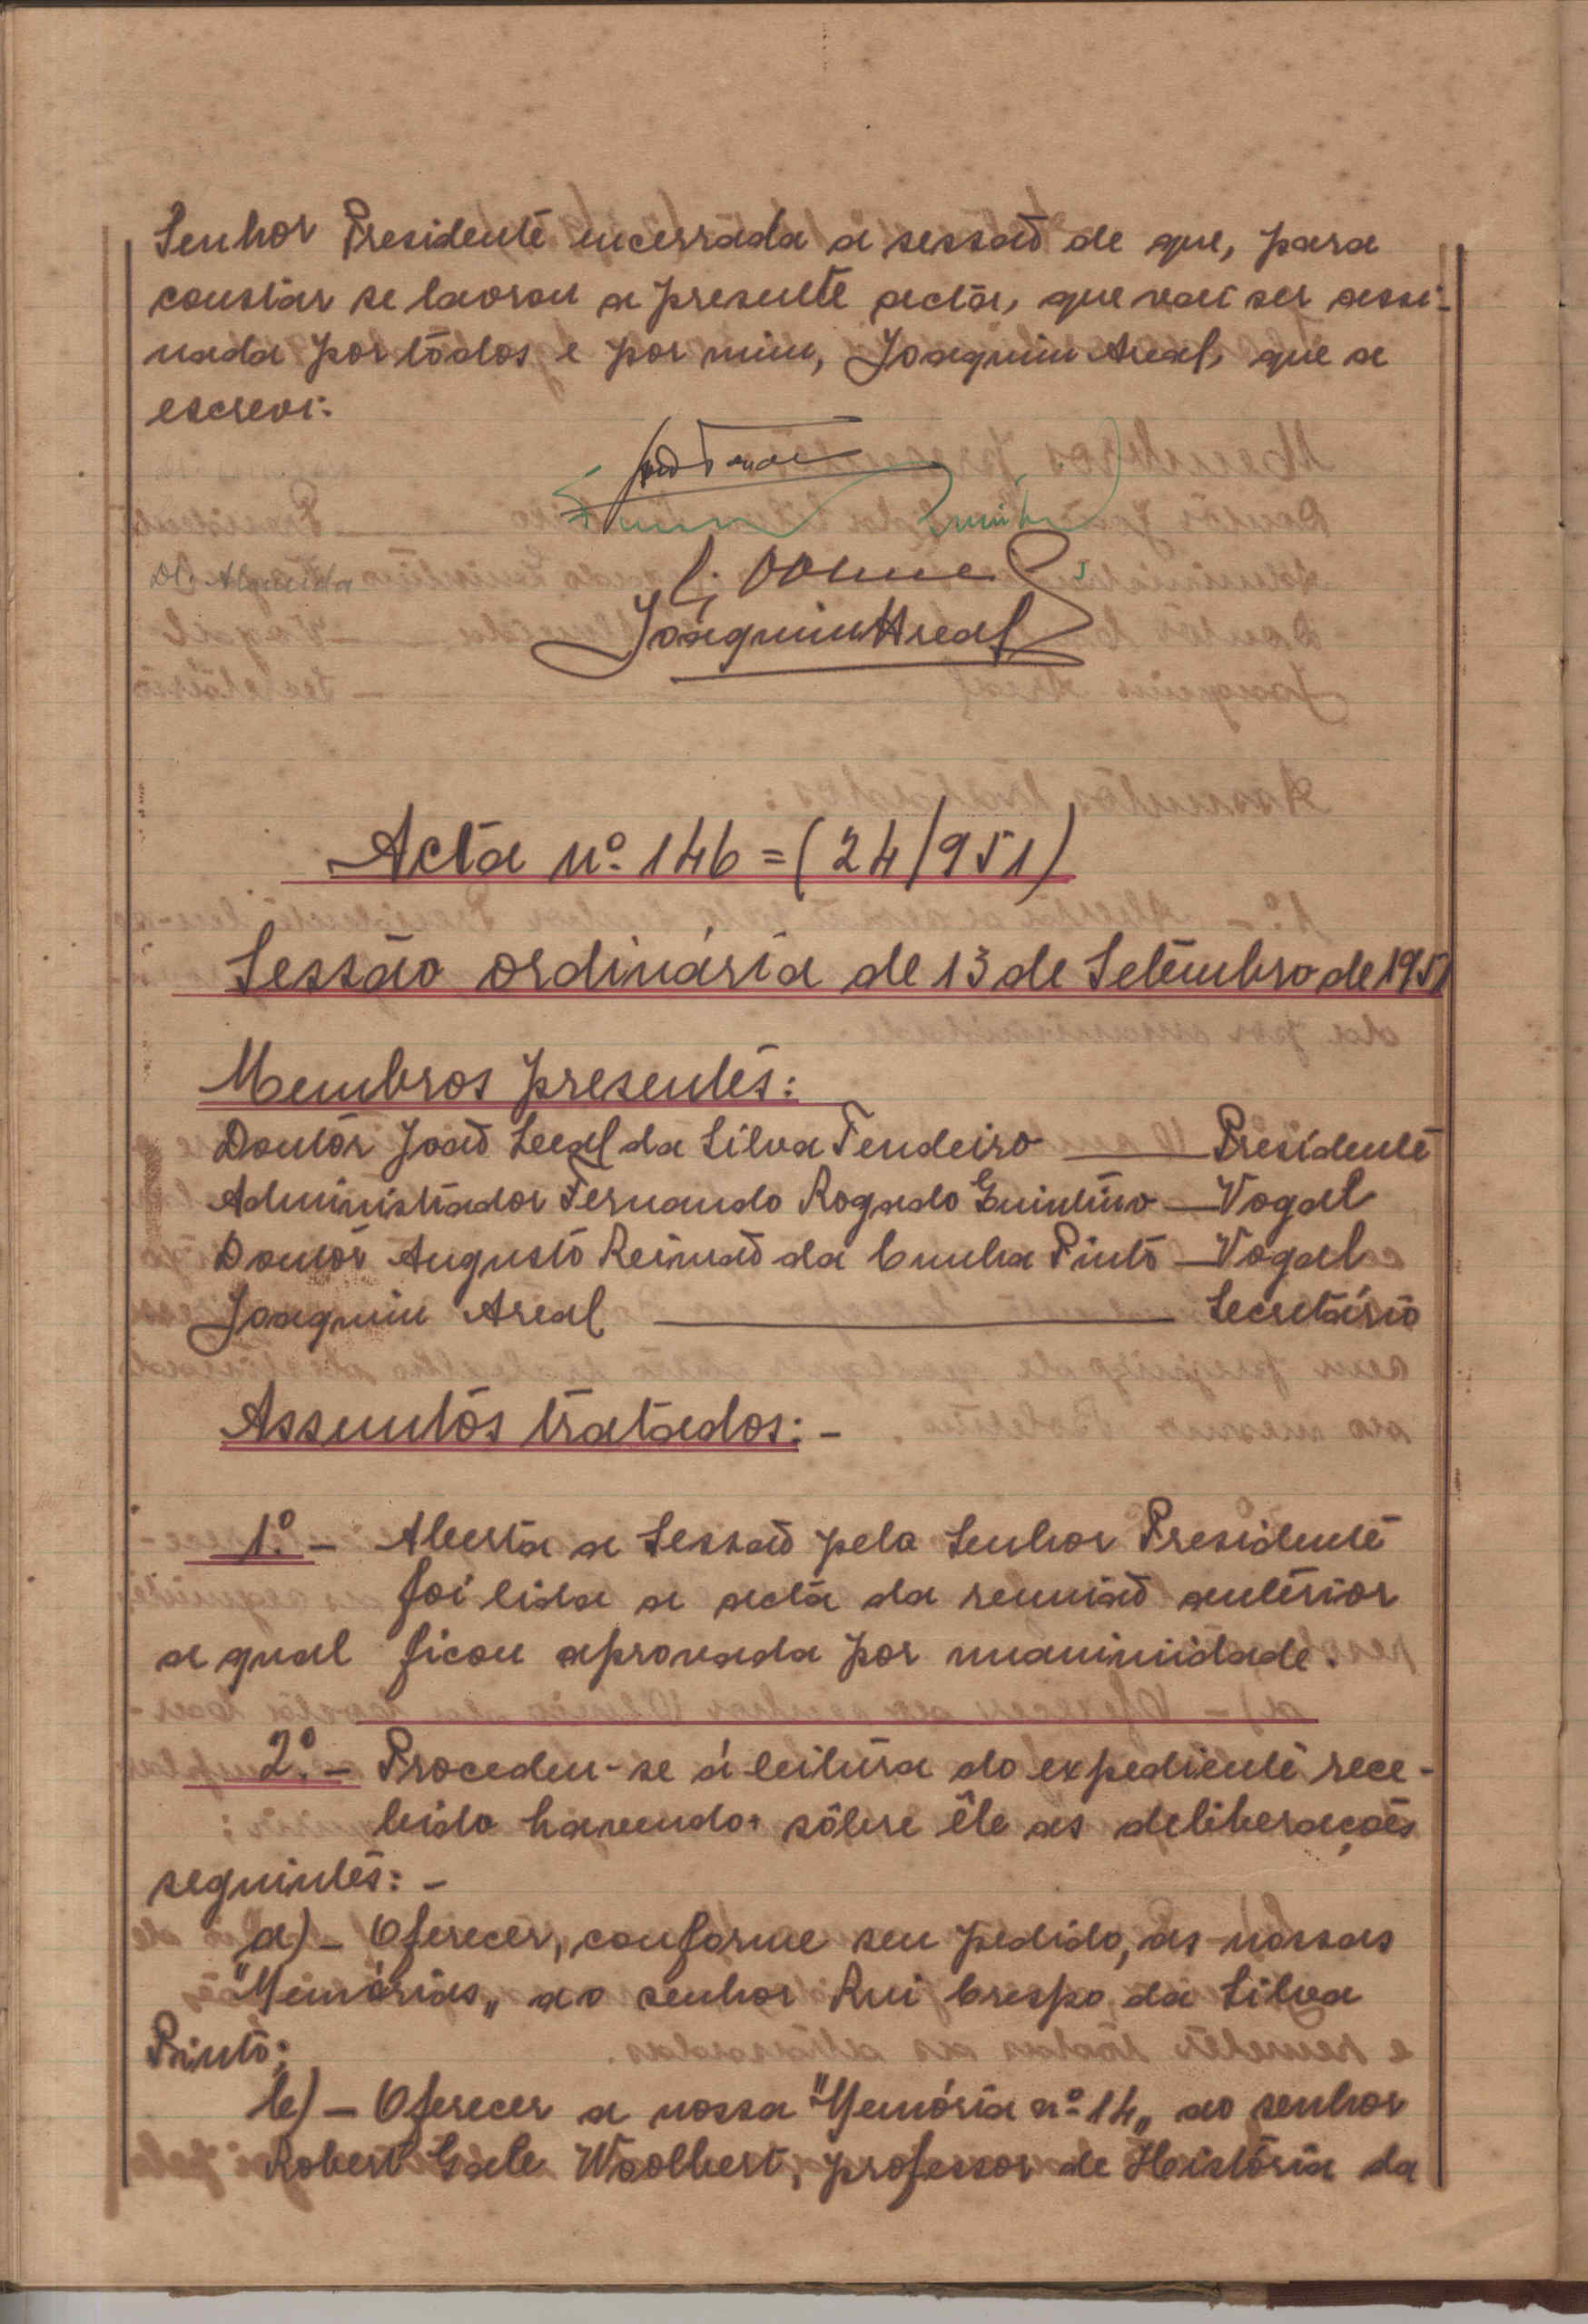 Senhor Presidente encerrada a sessaõ de que, para
constar se lavrou a presente acta, que vai ser assi-
nada por tôdos e por mim, Joaquim Areal, que a
escrevi:
Dr. Almeida
Joaquim Areal
Acta nº. 146 = (24/951)
Sessão ordinária de 13 de Setembro de 1951
Membros presentes:
Doutor Joaõ Leal da Silva Tendeiro — Presidente
Administrador Fernando Rogado Quintino — Vogal
Doutor Augusto Reimaõ da Cunha Pinto — Vogal
Joaquim Areal — Secretário
Assuntos tratados: -
1º. - Aberta a Sessaõ pelo Senhor Presidente
foi lida a acta da reuniaõ anterior
a qual ficou aprovada por unanimidade.
2º. - Procedeu-se á leitura do expediente rece-
bido havendo, sôbre êle as deliberaçoẽs
seguintes: -
a) - Oferecer, conforme seu pedido, as nossas
"Memórias„ ao senhor Rui Crespo da Silva
Pinto;
b) - Oferecer a nossa "Memória nº 14„ ao senhor
Robert Gale Woolbert, professor de História da